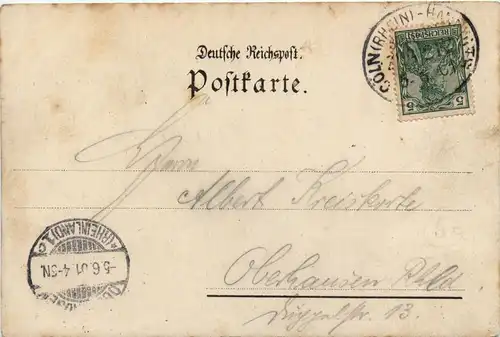 Deutsche Reichspost.
Postkarte.
CÖLN (RHEIN) - HAUPT
REICHSPOST
5 5
Herrn
Albert Kreiskorte
Oberhausen Rhld
Düppelstr. 13.
(RHEINLAND) 1 c
-5.6.01.4-5N.